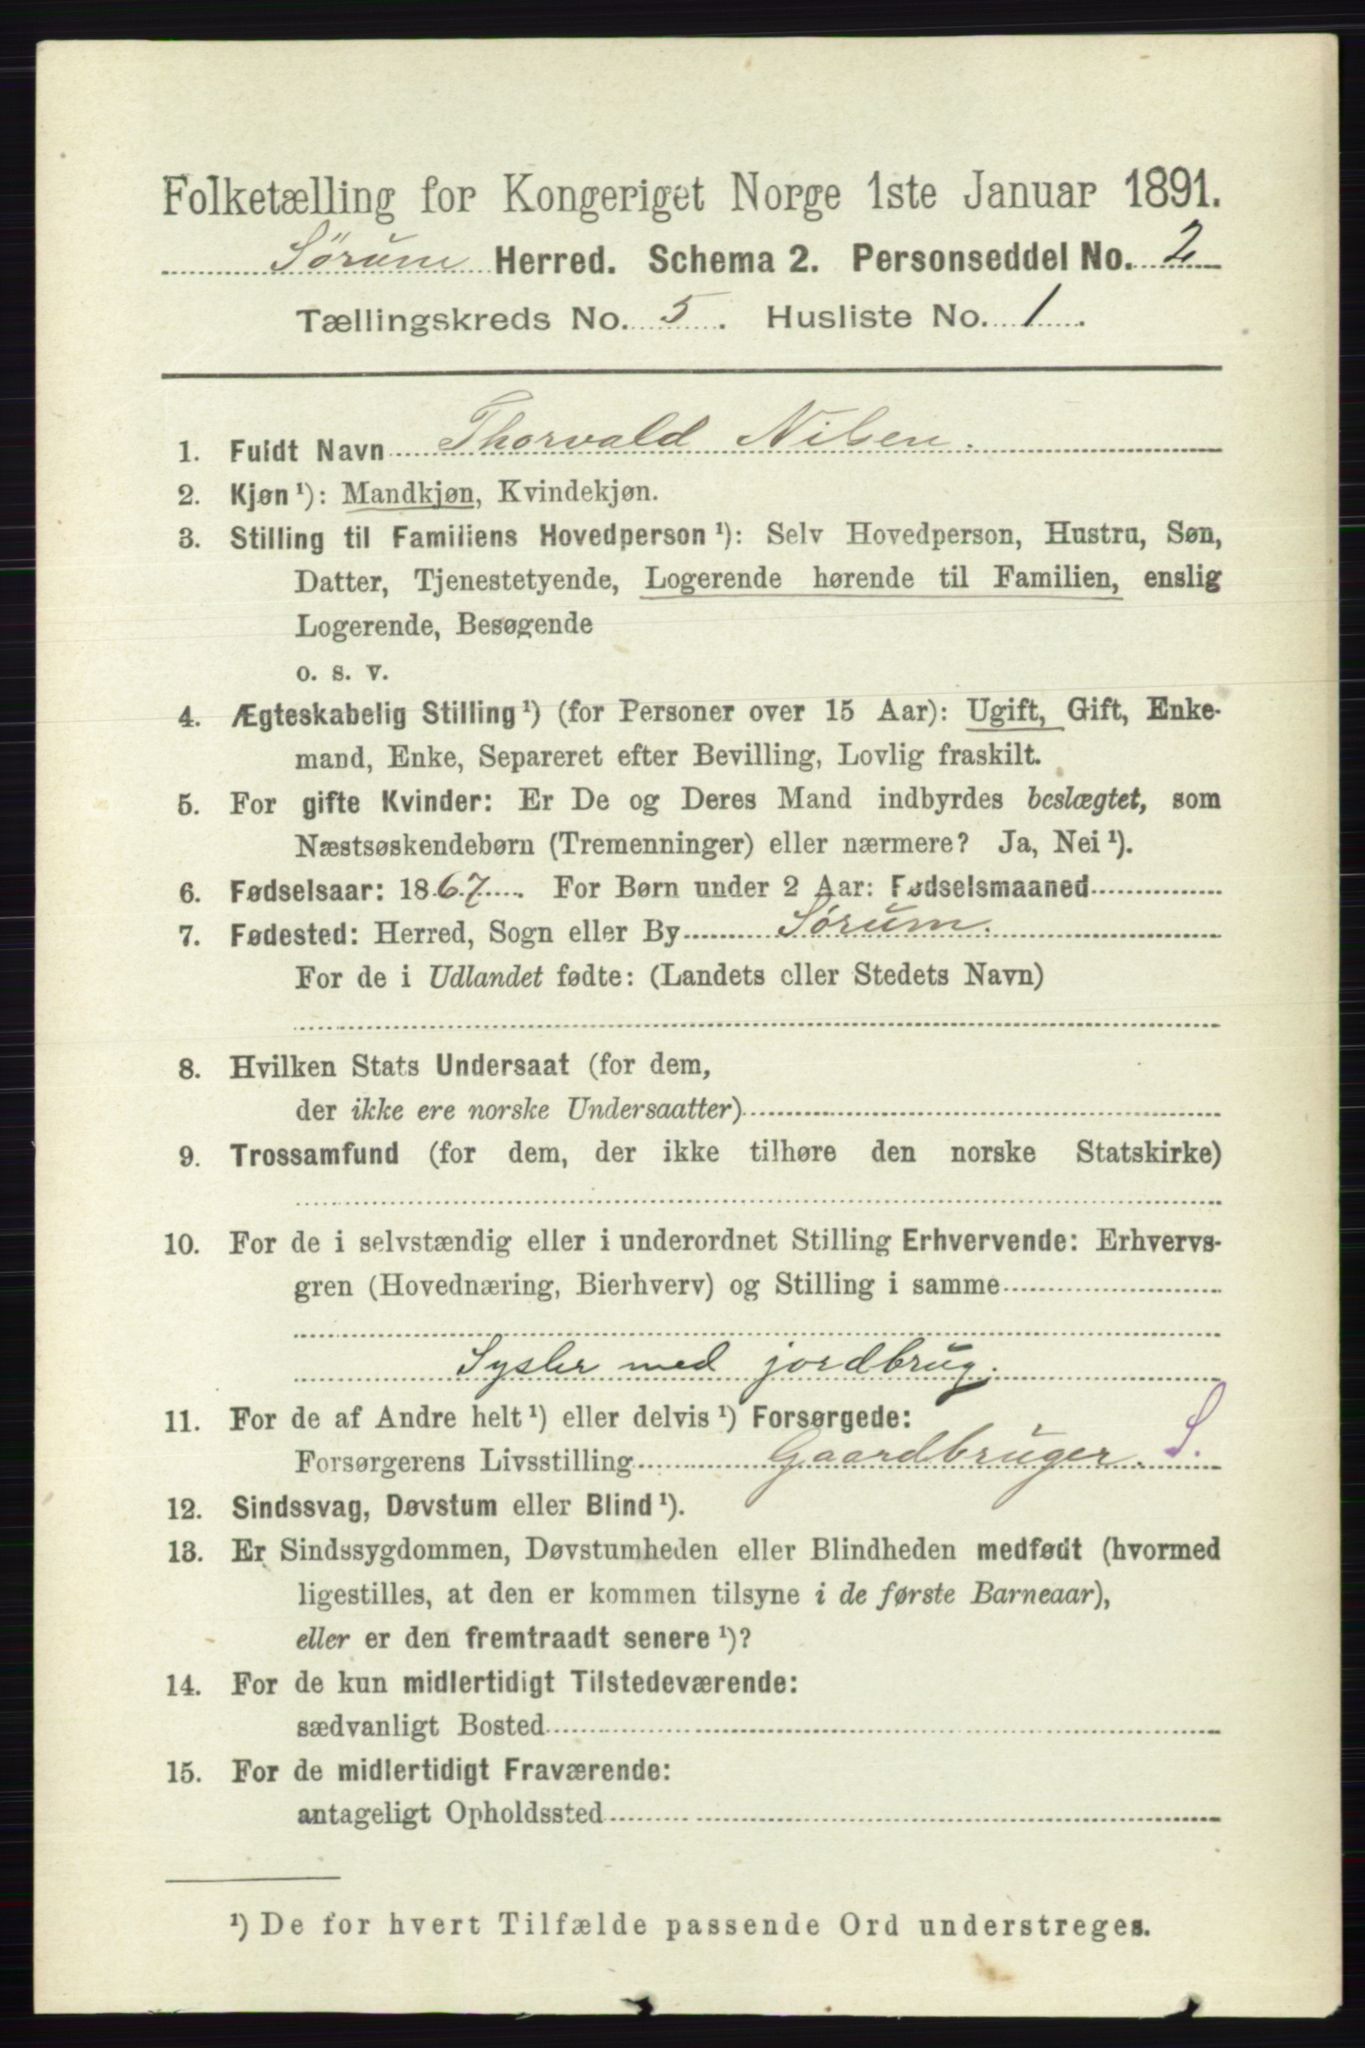 Folketælling for Kongeriget Norge 1ste Januar 1891.
Sørum Herred. Schema 2. Personseddel No. 2
Tællingskreds No. 5. Husliste No. 1.
1. Fuldt Navn Thorvald Nilsen.
2. Kjøn ¹): Mandkjøn, Kvindekjøn.
3. Stilling til Familiens Hovedperson ¹): Selv Hovedperson, Hustru, Søn,
Datter, Tjenestetyende, Logerende hørende til Familien, enslig
Logerende, Besøgende
o. s. v.
4. Ægteskabelig Stilling ¹) (for Personer over 15 Aar): Ugift, Gift, Enke-
mand, Enke, Separeret efter Bevilling, Lovlig fraskilt.
5. For gifte Kvinder: Er De og Deres Mand indbyrdes beslægtet, som
Næstsøskendebørn (Tremenninger) eller nærmere? Ja, Nei ¹).
6. Fødselsaar: 1867. For Børn under 2 Aar: Fødselsmaaned
7. Fødested: Herred, Sogn eller By Sørum.
For de i Udlandet fødte: (Landets eller Stedets Navn)
8. Hvilken Stats Undersaat (for dem,
der ikke ere norske Undersaatter)
9. Trossamfund (for dem, der ikke tilhøre den norske Statskirke)
10. For de i selvstændig eller i underordnet Stilling Erhvervende: Erhvervs-
gren (Hovednæring, Bierhverv) og Stilling i samme
Sysler med jordbrug.
11. For de af Andre helt ¹) eller delvis ¹) Forsørgede:
Forsørgerens Livsstilling Gaardbruger. S.
12. Sindssvag, Døvstum eller Blind ¹).
13. Er Sindssygdommen, Døvstumheden eller Blindheden medfødt (hvormed
ligestilles, at den er kommen tilsyne i de første Barneaar),
eller er den fremtraadt senere ¹)?
14. For de kun midlertidigt Tilstedeværende:
sædvanligt Bosted
15. For de midlertidigt Fraværende:
antageligt Opholdssted
¹) De for hvert Tilfælde passende Ord understreges.